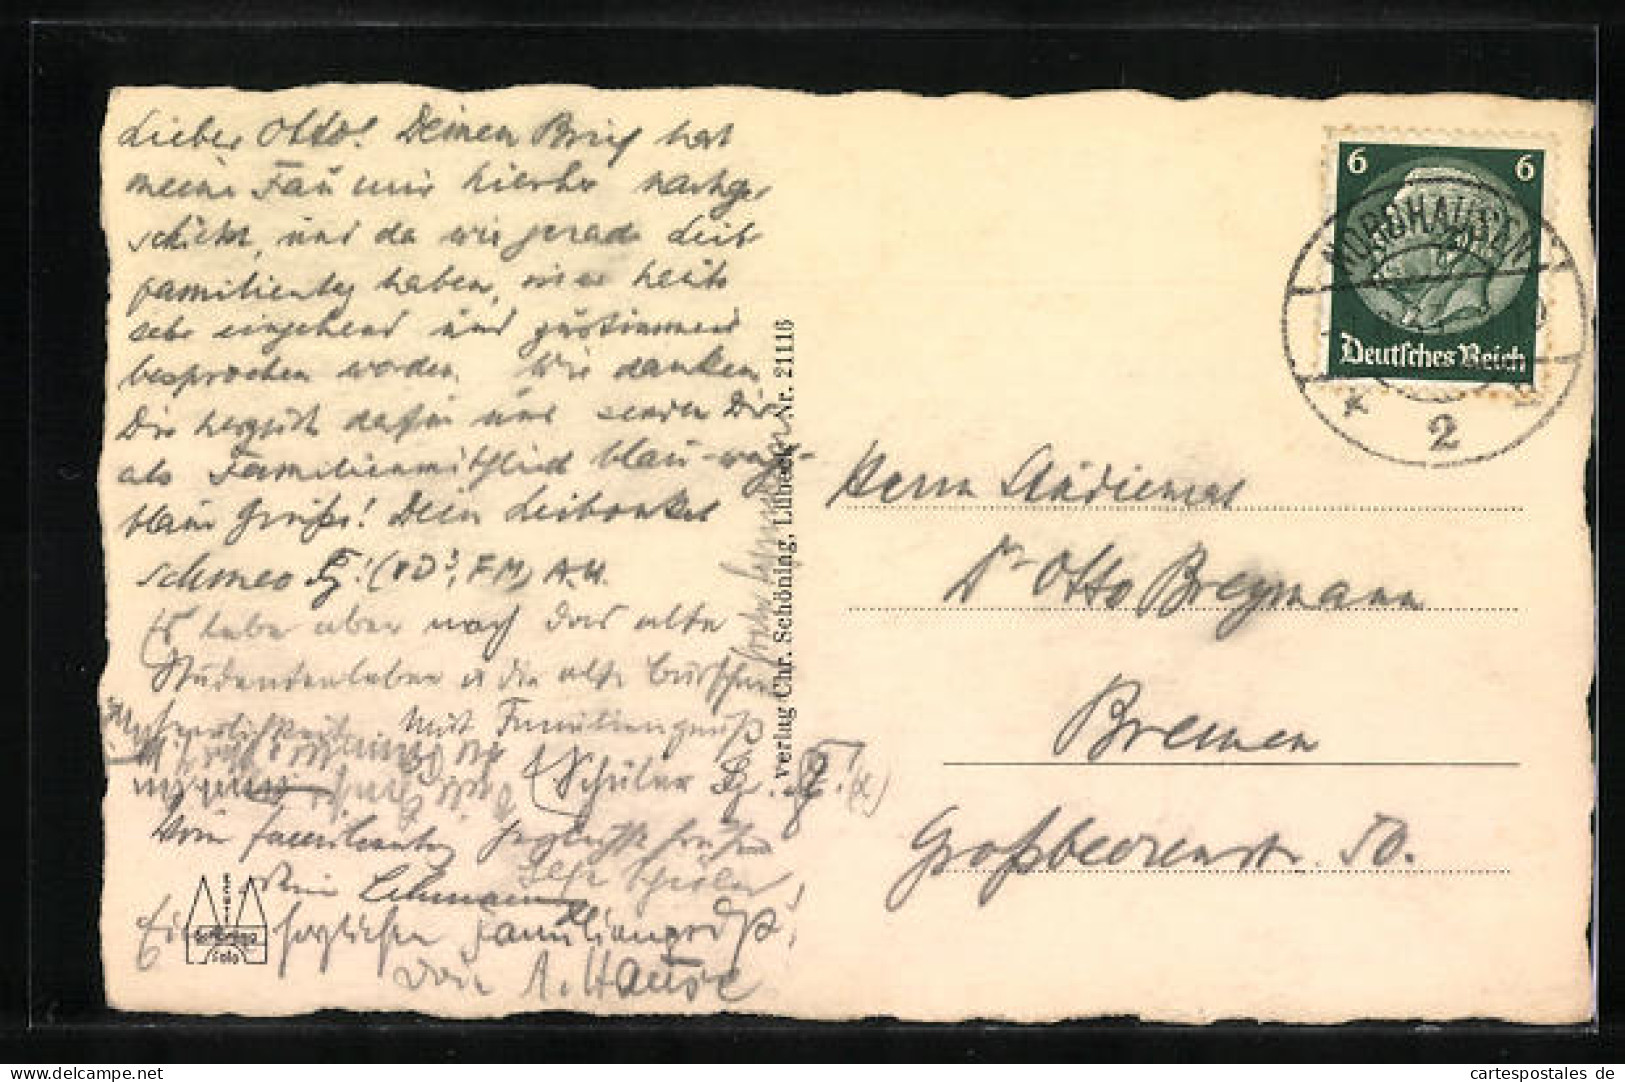 Lieber Otto! Deinen Brief hat
meine Frau mir hierher nachge-
schickt, und da wir gerade Leib-
familientag haben, ist er heute
sehr eingehend und zustimmend
besprochen worden. Wir danken
Dir herzlich dafür und senden Dir
als Familienmitglied blau-weiß-
blaue Grüße! Dein Leibonkel
Schmeo (XD³, FM) A.H.
Es lebe aber noch das alte
Studentenleben u die alte Burschen
herrlichkeit. Mit Familiengruß
Schüler
Vom Familientag herzlichste Grüße
Dein Lehmann
Einen herzlichen Familiengruß!
von A. Hause
Verlag Chr. Schöning, Lübeck Nr. 21116
SCHUTZ
Foto
6 6
Deutsches Reich
NORDHAUSEN
* 2
Herrn Studienrat
Dr Otto Bregmann
Bremen
Großbeerenstr. 50.
cartespostales de